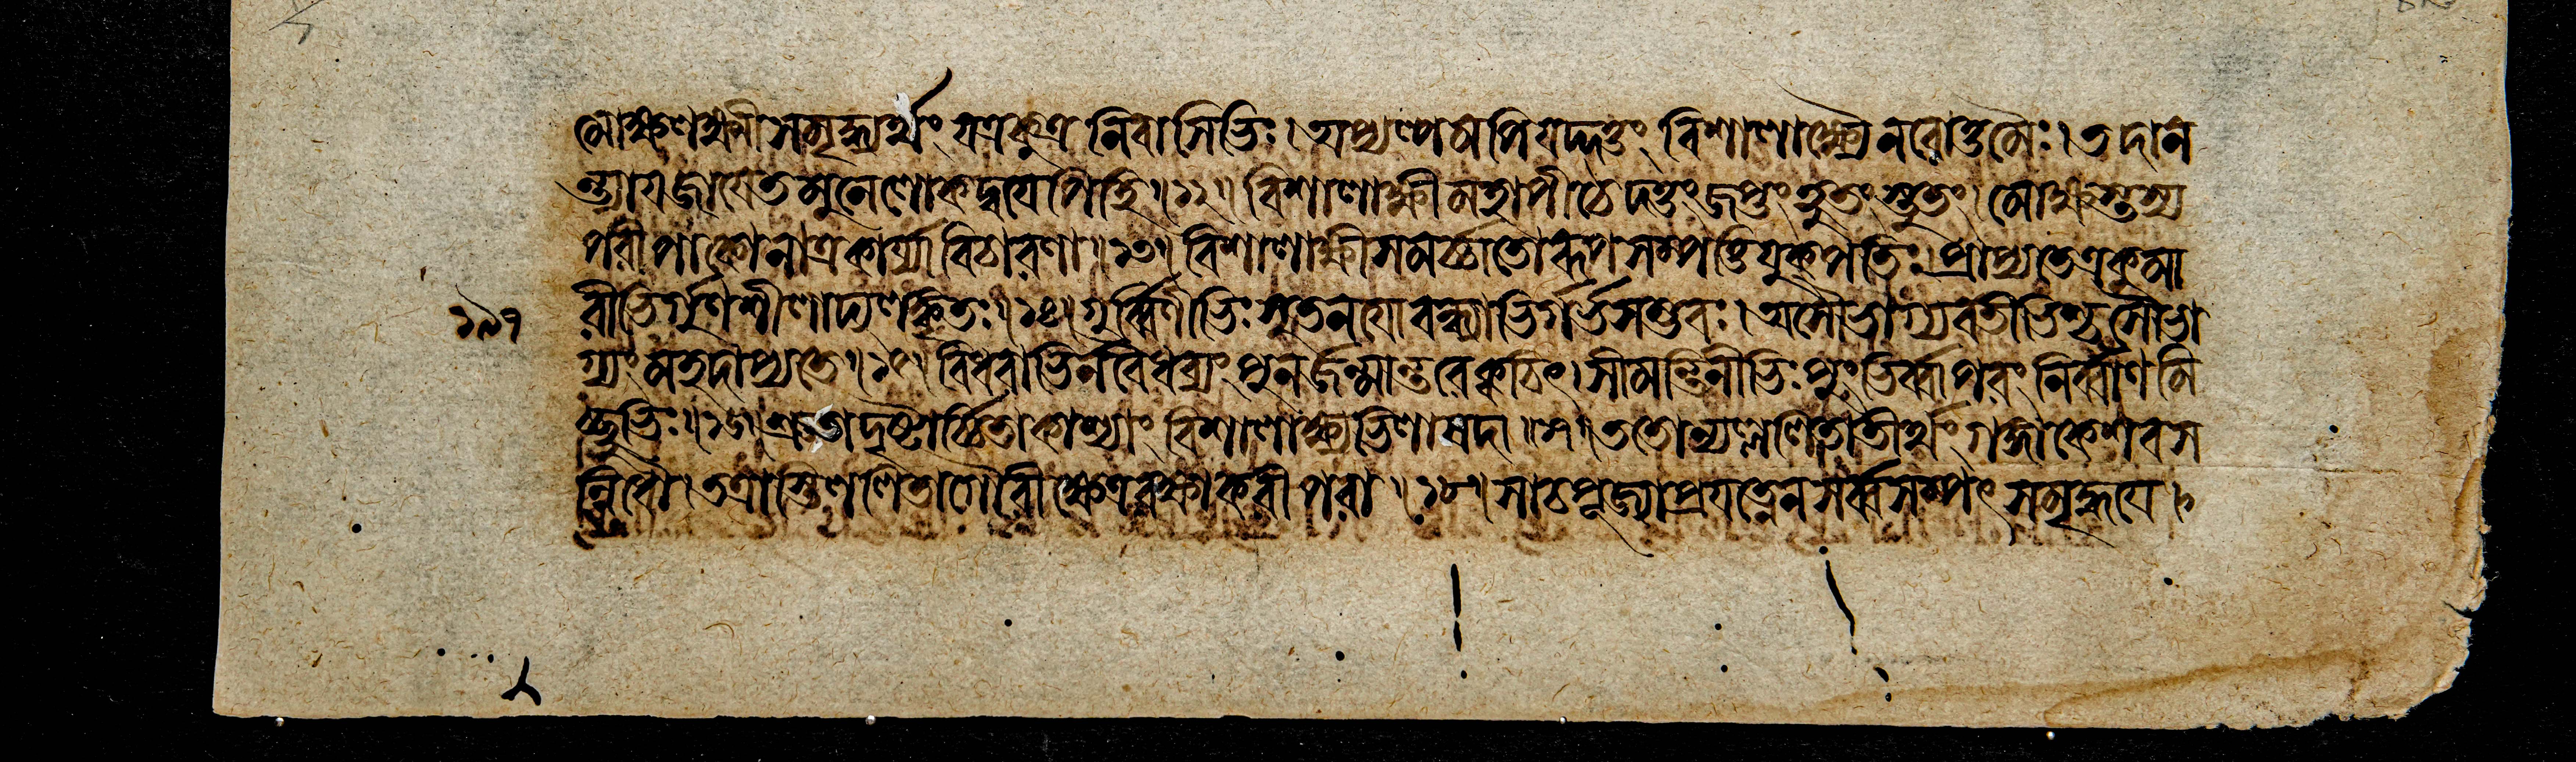 মোক্ষলক্ষ্মীসমৃদ্ধ্যর্থং যত্রকুত্র নিবাসিভিঃ। অপ্যল্পমপি যদ্দত্তং বিশালাক্ষ্যৈ নরোত্তমৈঃ। তদান
ন্ত্যায জাযেত মুনে লোকদ্বযেপি হি॥১২॥ বিশালাক্ষীমহাপীঠে দত্তং জপ্তং হুতং স্তুতং। মোক্ষস্তস্য
পরীপাকো নাত্র কার্য্যা বিচারণা॥১৩॥ বিশালাক্ষীসমর্চ্চাতো রূপসম্পত্তিযুক্পতিঃ। প্রাপ্যতেত্র কুমা
রীভির্গুণশীলাদ্যলঙ্কৃতঃ॥১৪॥ গুর্ব্বিণীভিঃ সুতনযো বন্ধ্যাভির্গর্ভসম্ভবঃ। অসৌভাগ্যবতীভিশ্চ সৌভা
গ্যং মহদাপ্যতে॥১৫॥ বিধবাভির্ন বৈধব্যং পুনর্জন্মান্তরে ক্বচিৎ। সীমন্তিনীভিঃ পুংভির্ব্বা পরং নির্ব্বাণমি
চ্ছুভিঃ॥১৬॥ শ্রুতা দৃষ্টার্চ্চিতা কাশ্যাং বিশালাক্ষ্যভিলাষদা॥১৭॥ ততোন্যল্ললিতাতীর্থং গঙ্গাকেশবস
ন্নিধৌ। তত্রাস্তি ললিতা গৌরী ক্ষেত্ররক্ষাকরী পরা॥১৮॥ সা চ পূজ্যা প্রযত্নেন সর্ব্বসম্পৎসমৃদ্ধযে।